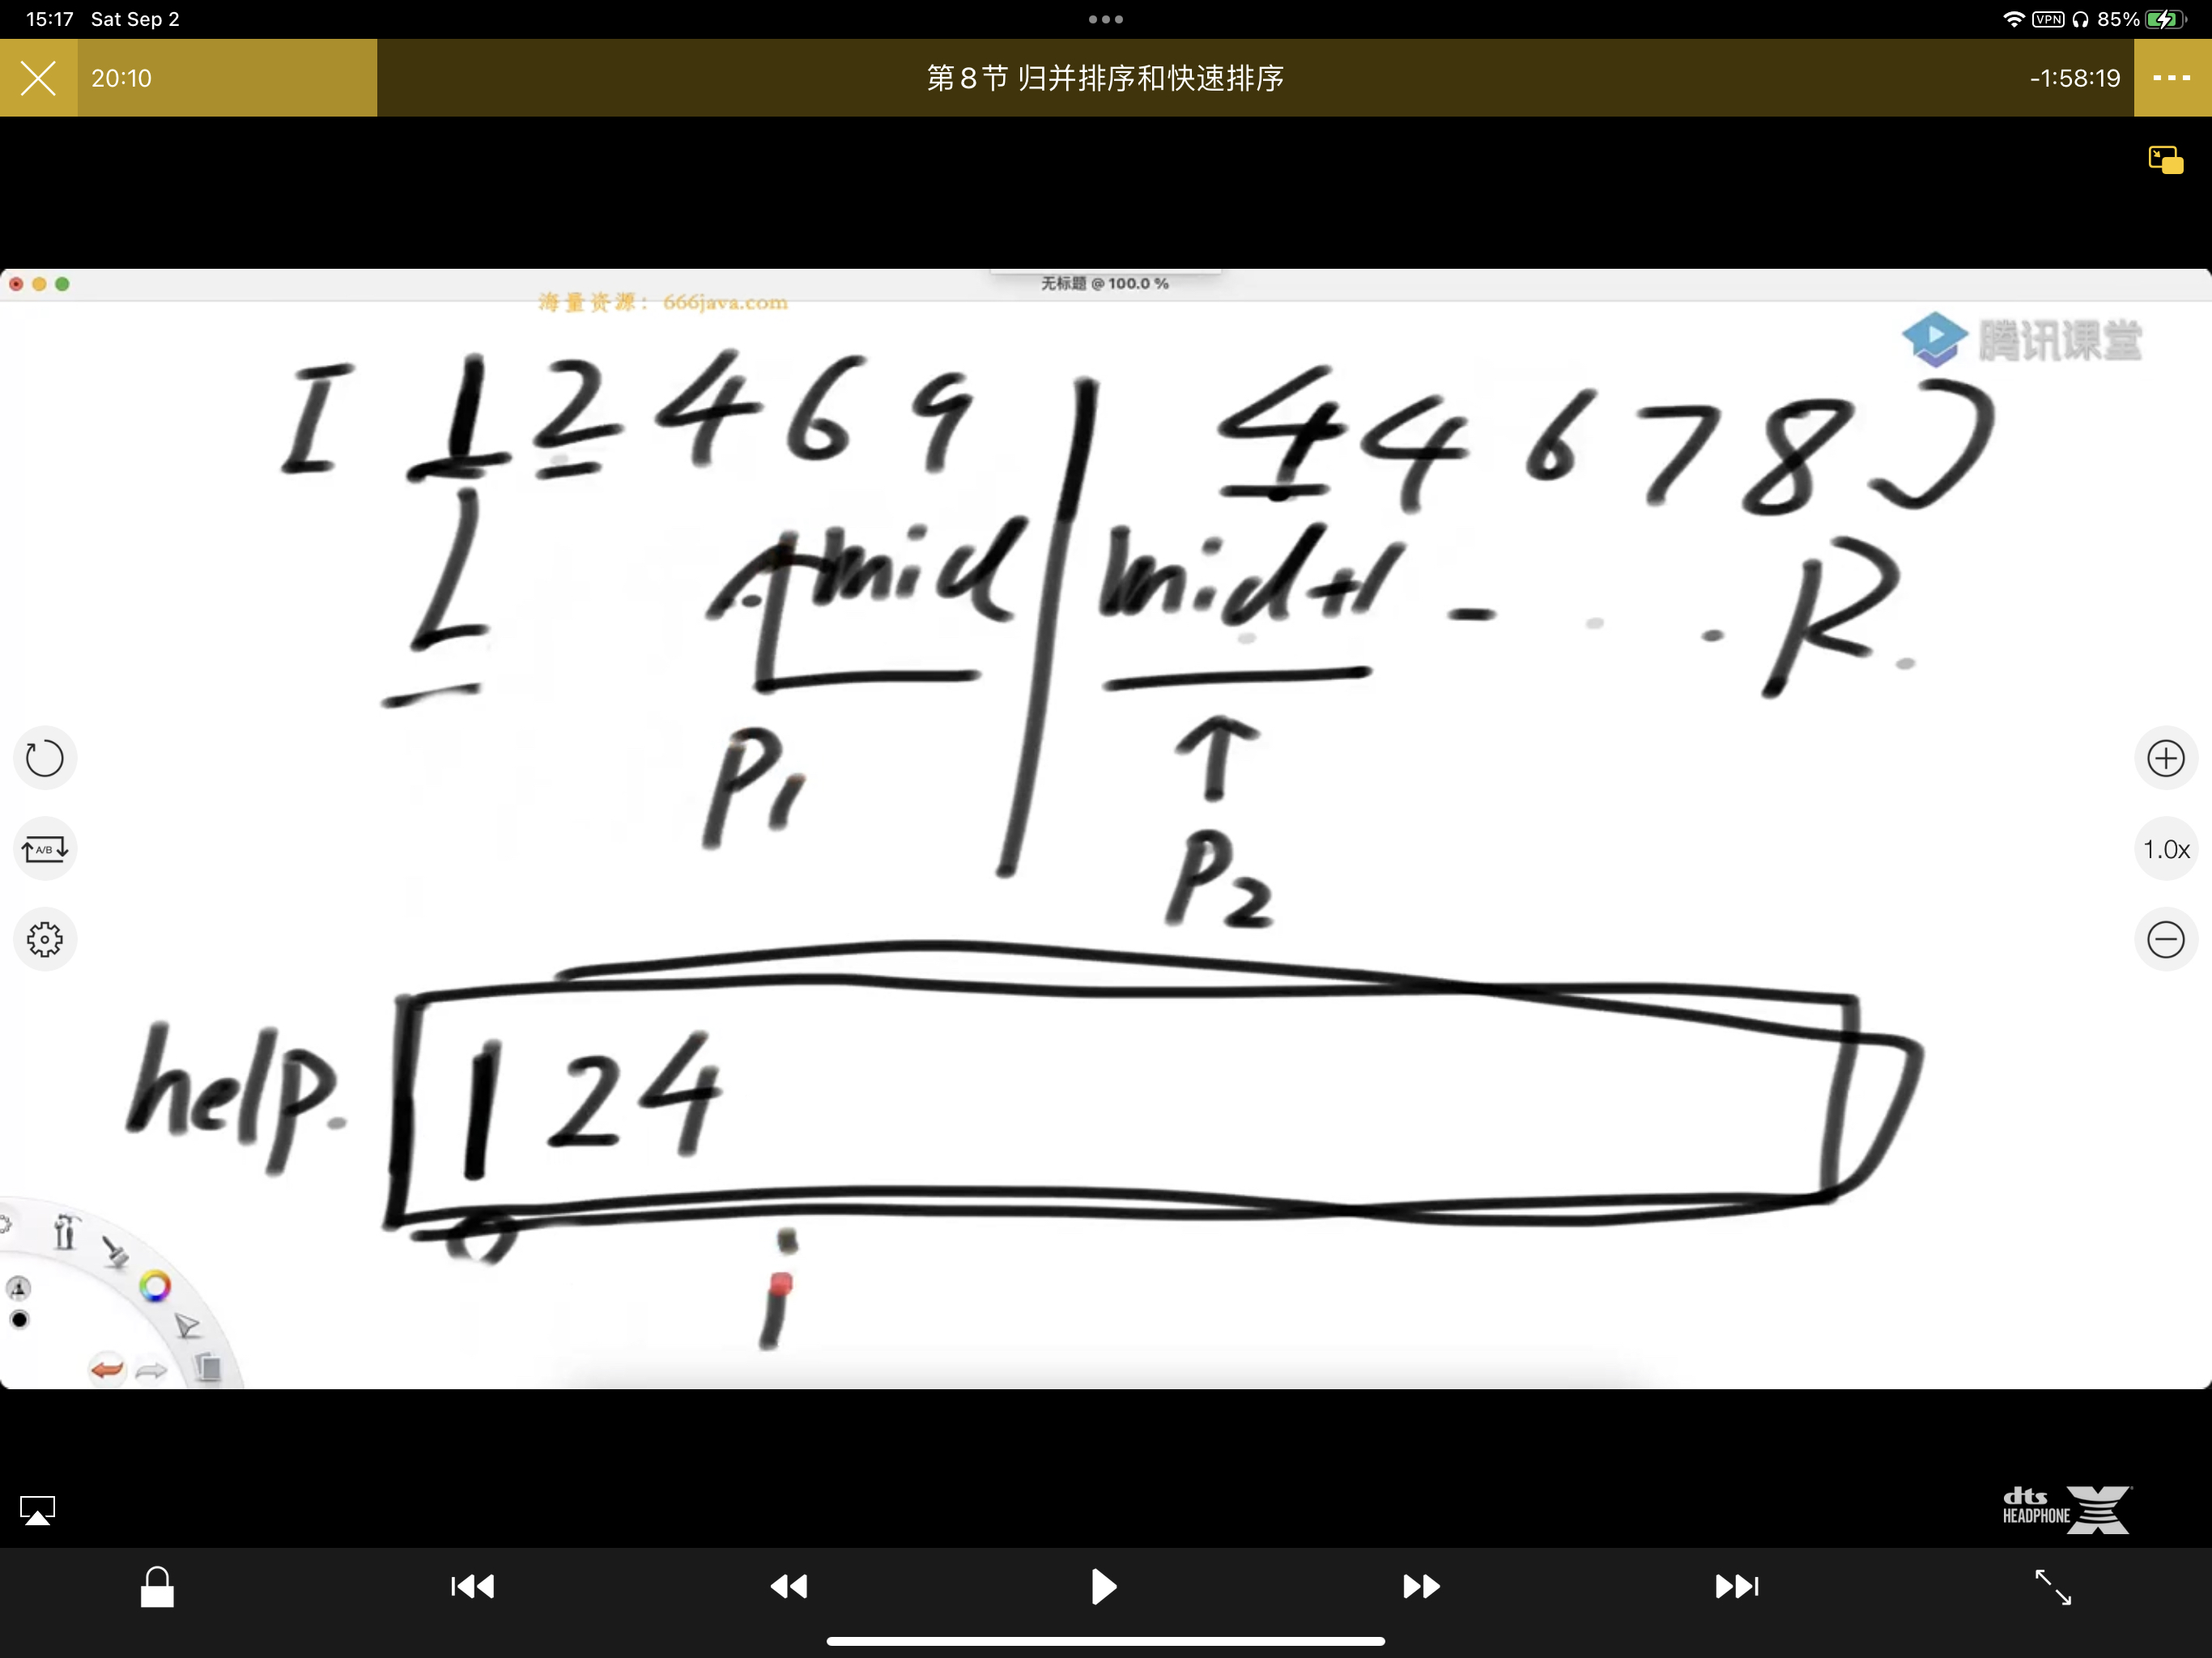 15:17 Sat Sep 2 VPN 85%
20:10 第8节 归并排序和快速排序 -1:58:19
无标题 @ 100.0 %
海量资源：666java.com
腾讯课堂
[ 1 2 4 6 9 | 4 4 6 7 8 ]
L mid mid+1 - . . R.
P1
P2
A/B
1.0x
help. 1 2 4
0 i
dts
HEADPHONE X